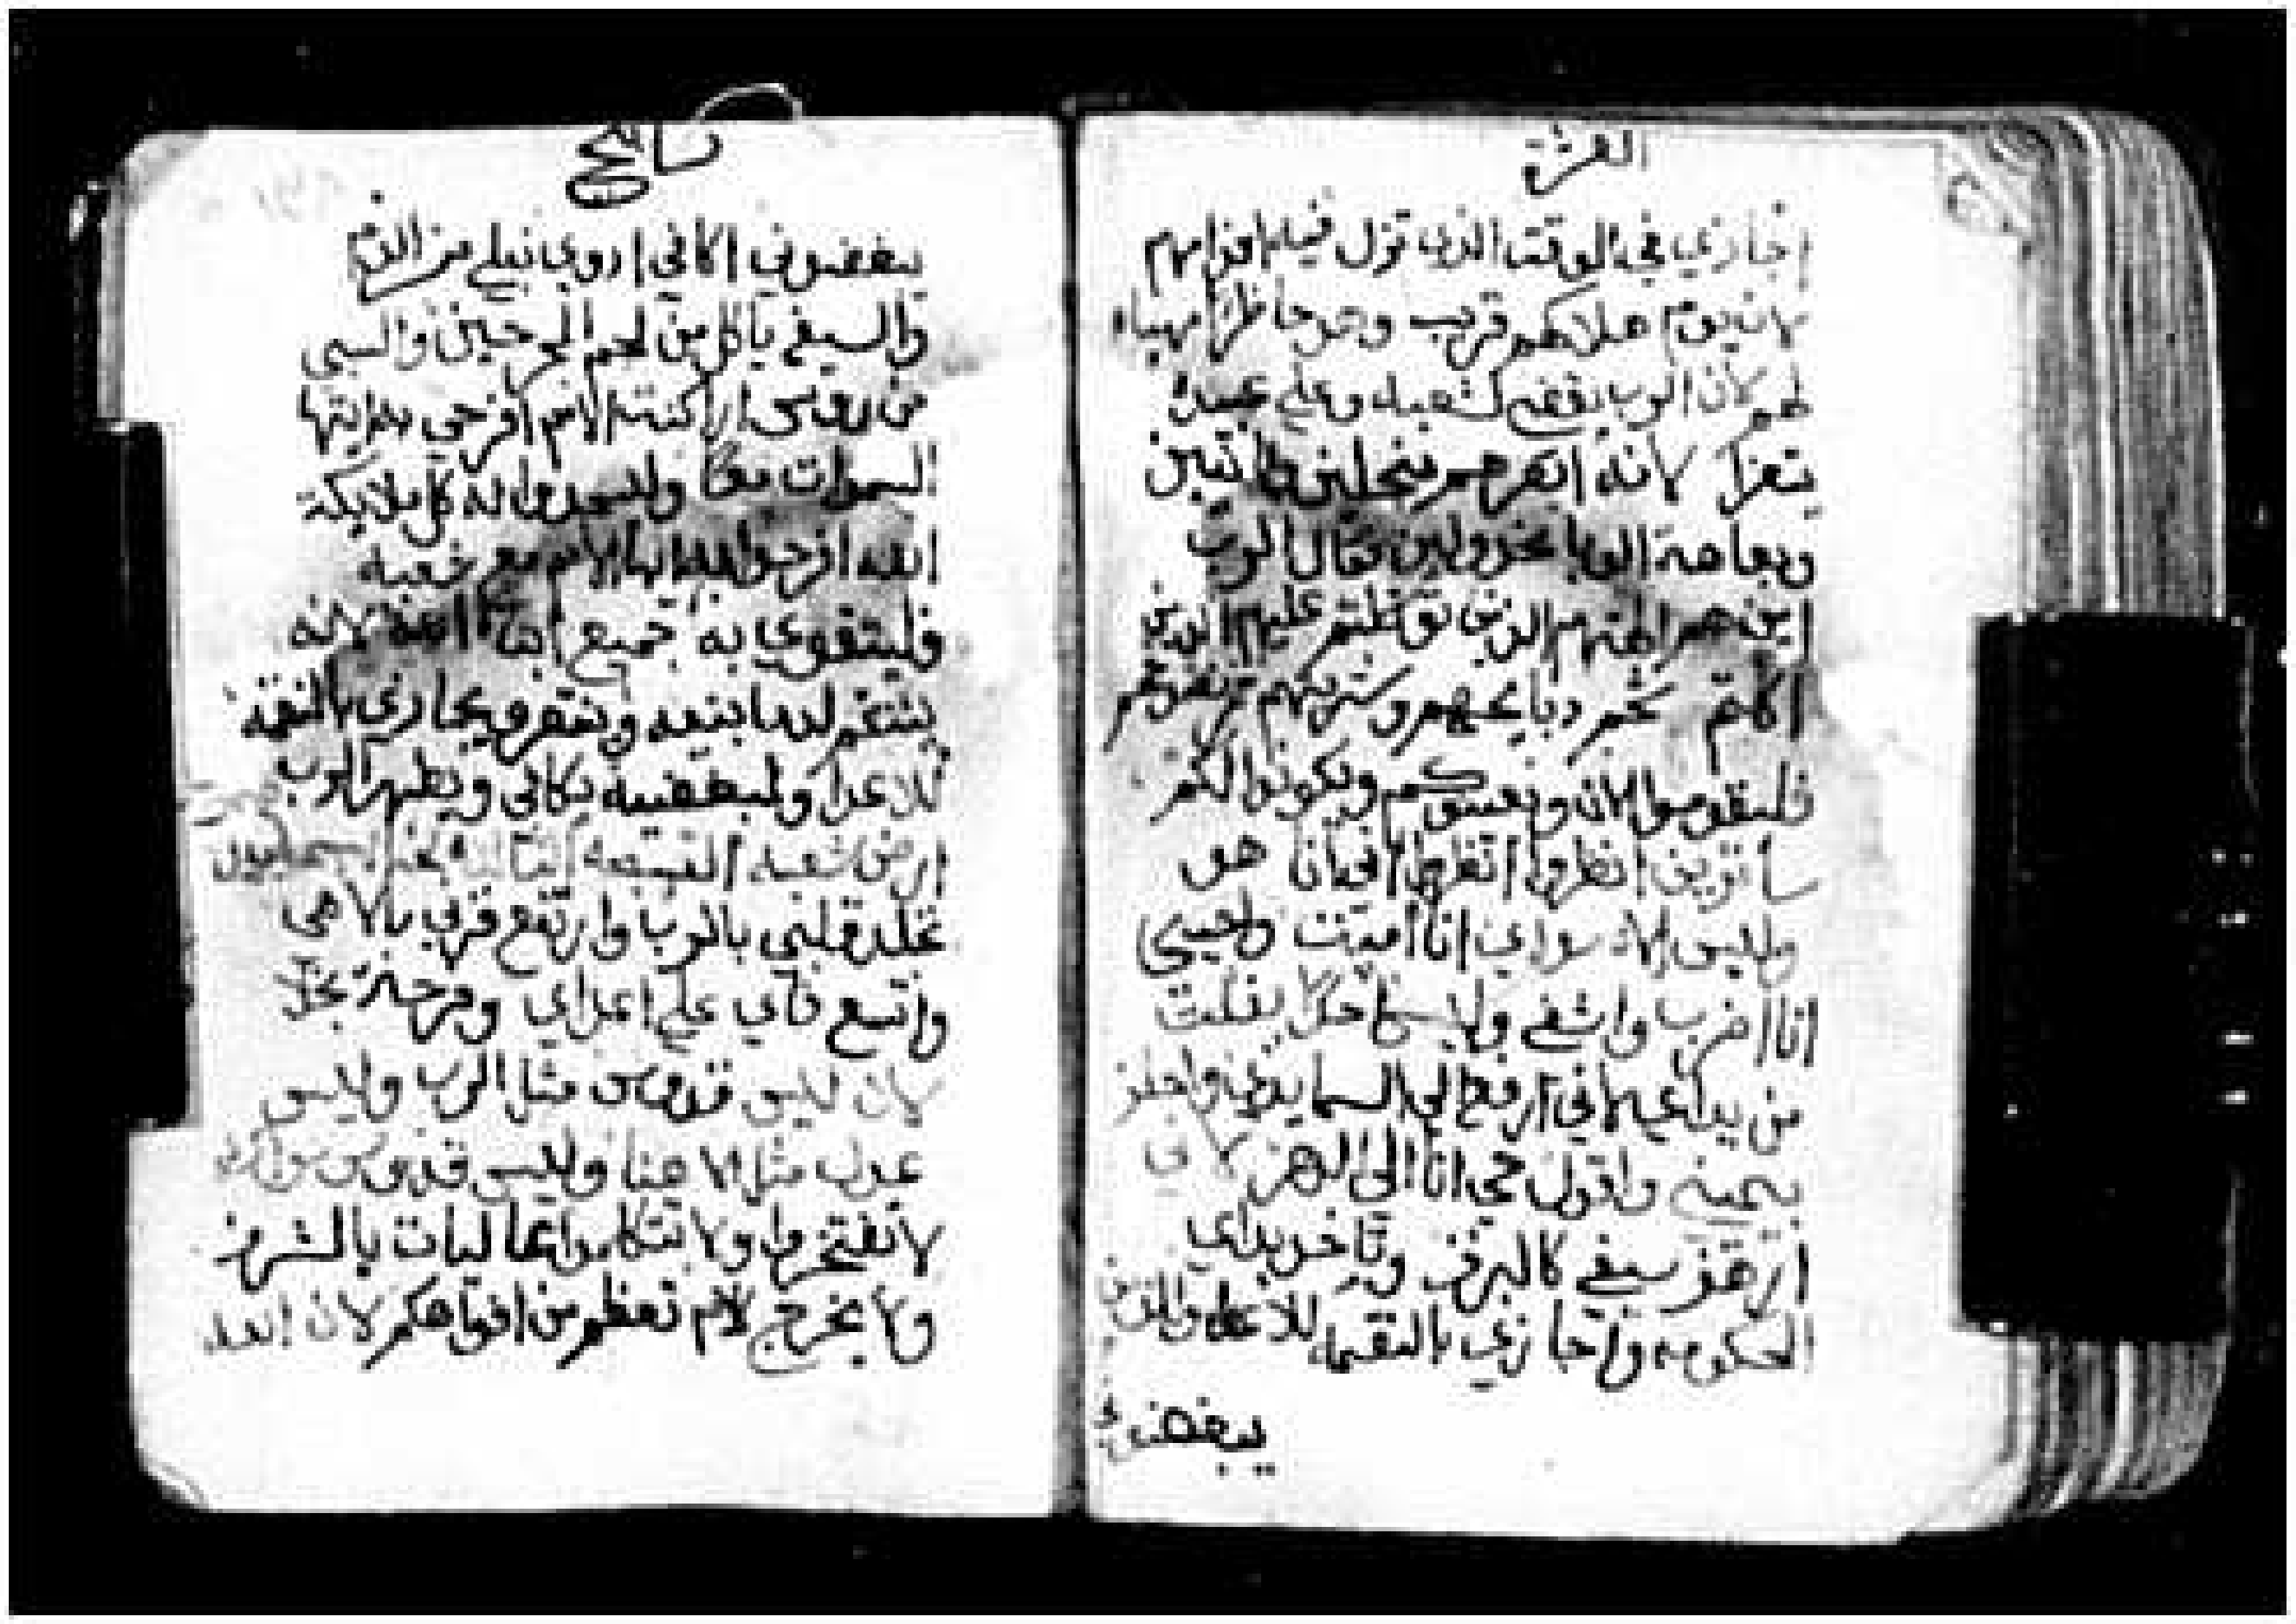 العشرة
اجازي في الوقت الذي تزل فيه اقدامهم
لان يوم هلاكهم قريب وهو حاظرا مهياء
لهم لان الرب يقضي لشعبه وعلي عبيده
يتعزا لانه انظرهم منحلين
قال الرب
اين هم الهتهم الذين توكلتم عليهم الذين
اكلتم شحم دبايحهم وشربتم خمر
فليقوموا الان ويعينوكم ويكونوا لكم
ساترين انظروا انظروا اني انا هو
وليس الاه سواي انا اميت واحيي
انا اضرب واشفي وليس احدا يفلت
من يداي لاني ارفع الي السما يدي واحلف
بيميني واقول حي انا الي الدهر لاني
ارهف سيفي كالبرق وتاخد يداي
الحكومه واجازي بالنقمه للاعدا والذين
يبغضوني
تسابيح
يبغضوني اكافي اروي نبلي من الدم
والسيف ياكل من لحم المجروحين والسبي
من روس اراكنة الامم افرحي
السموات معا وليسجدوا له كل ملايكة
الله افرحوا ايها الامم مع شعبه
فليتقوي به جميع ابنا الله لانه
ينتقم لدما بنيه وينتقم ويجازي بالنقمه
للاعدا ولمبغضيه يكافي ويطهر الرب
ارض شعبه التسبحه الثالثه
قلبي بالرب وارتفع قرني بالاهي
واتسع فاي علي اعداي وفرحت بخلا
لان ليس قدوس مثل الرب وليس
عدل مثل الاهنا وليس قدوس
لا تفتخروا ولا تتكلموا بالشرف
ولا يخرج كلام تعظم من افواهكم لان الله